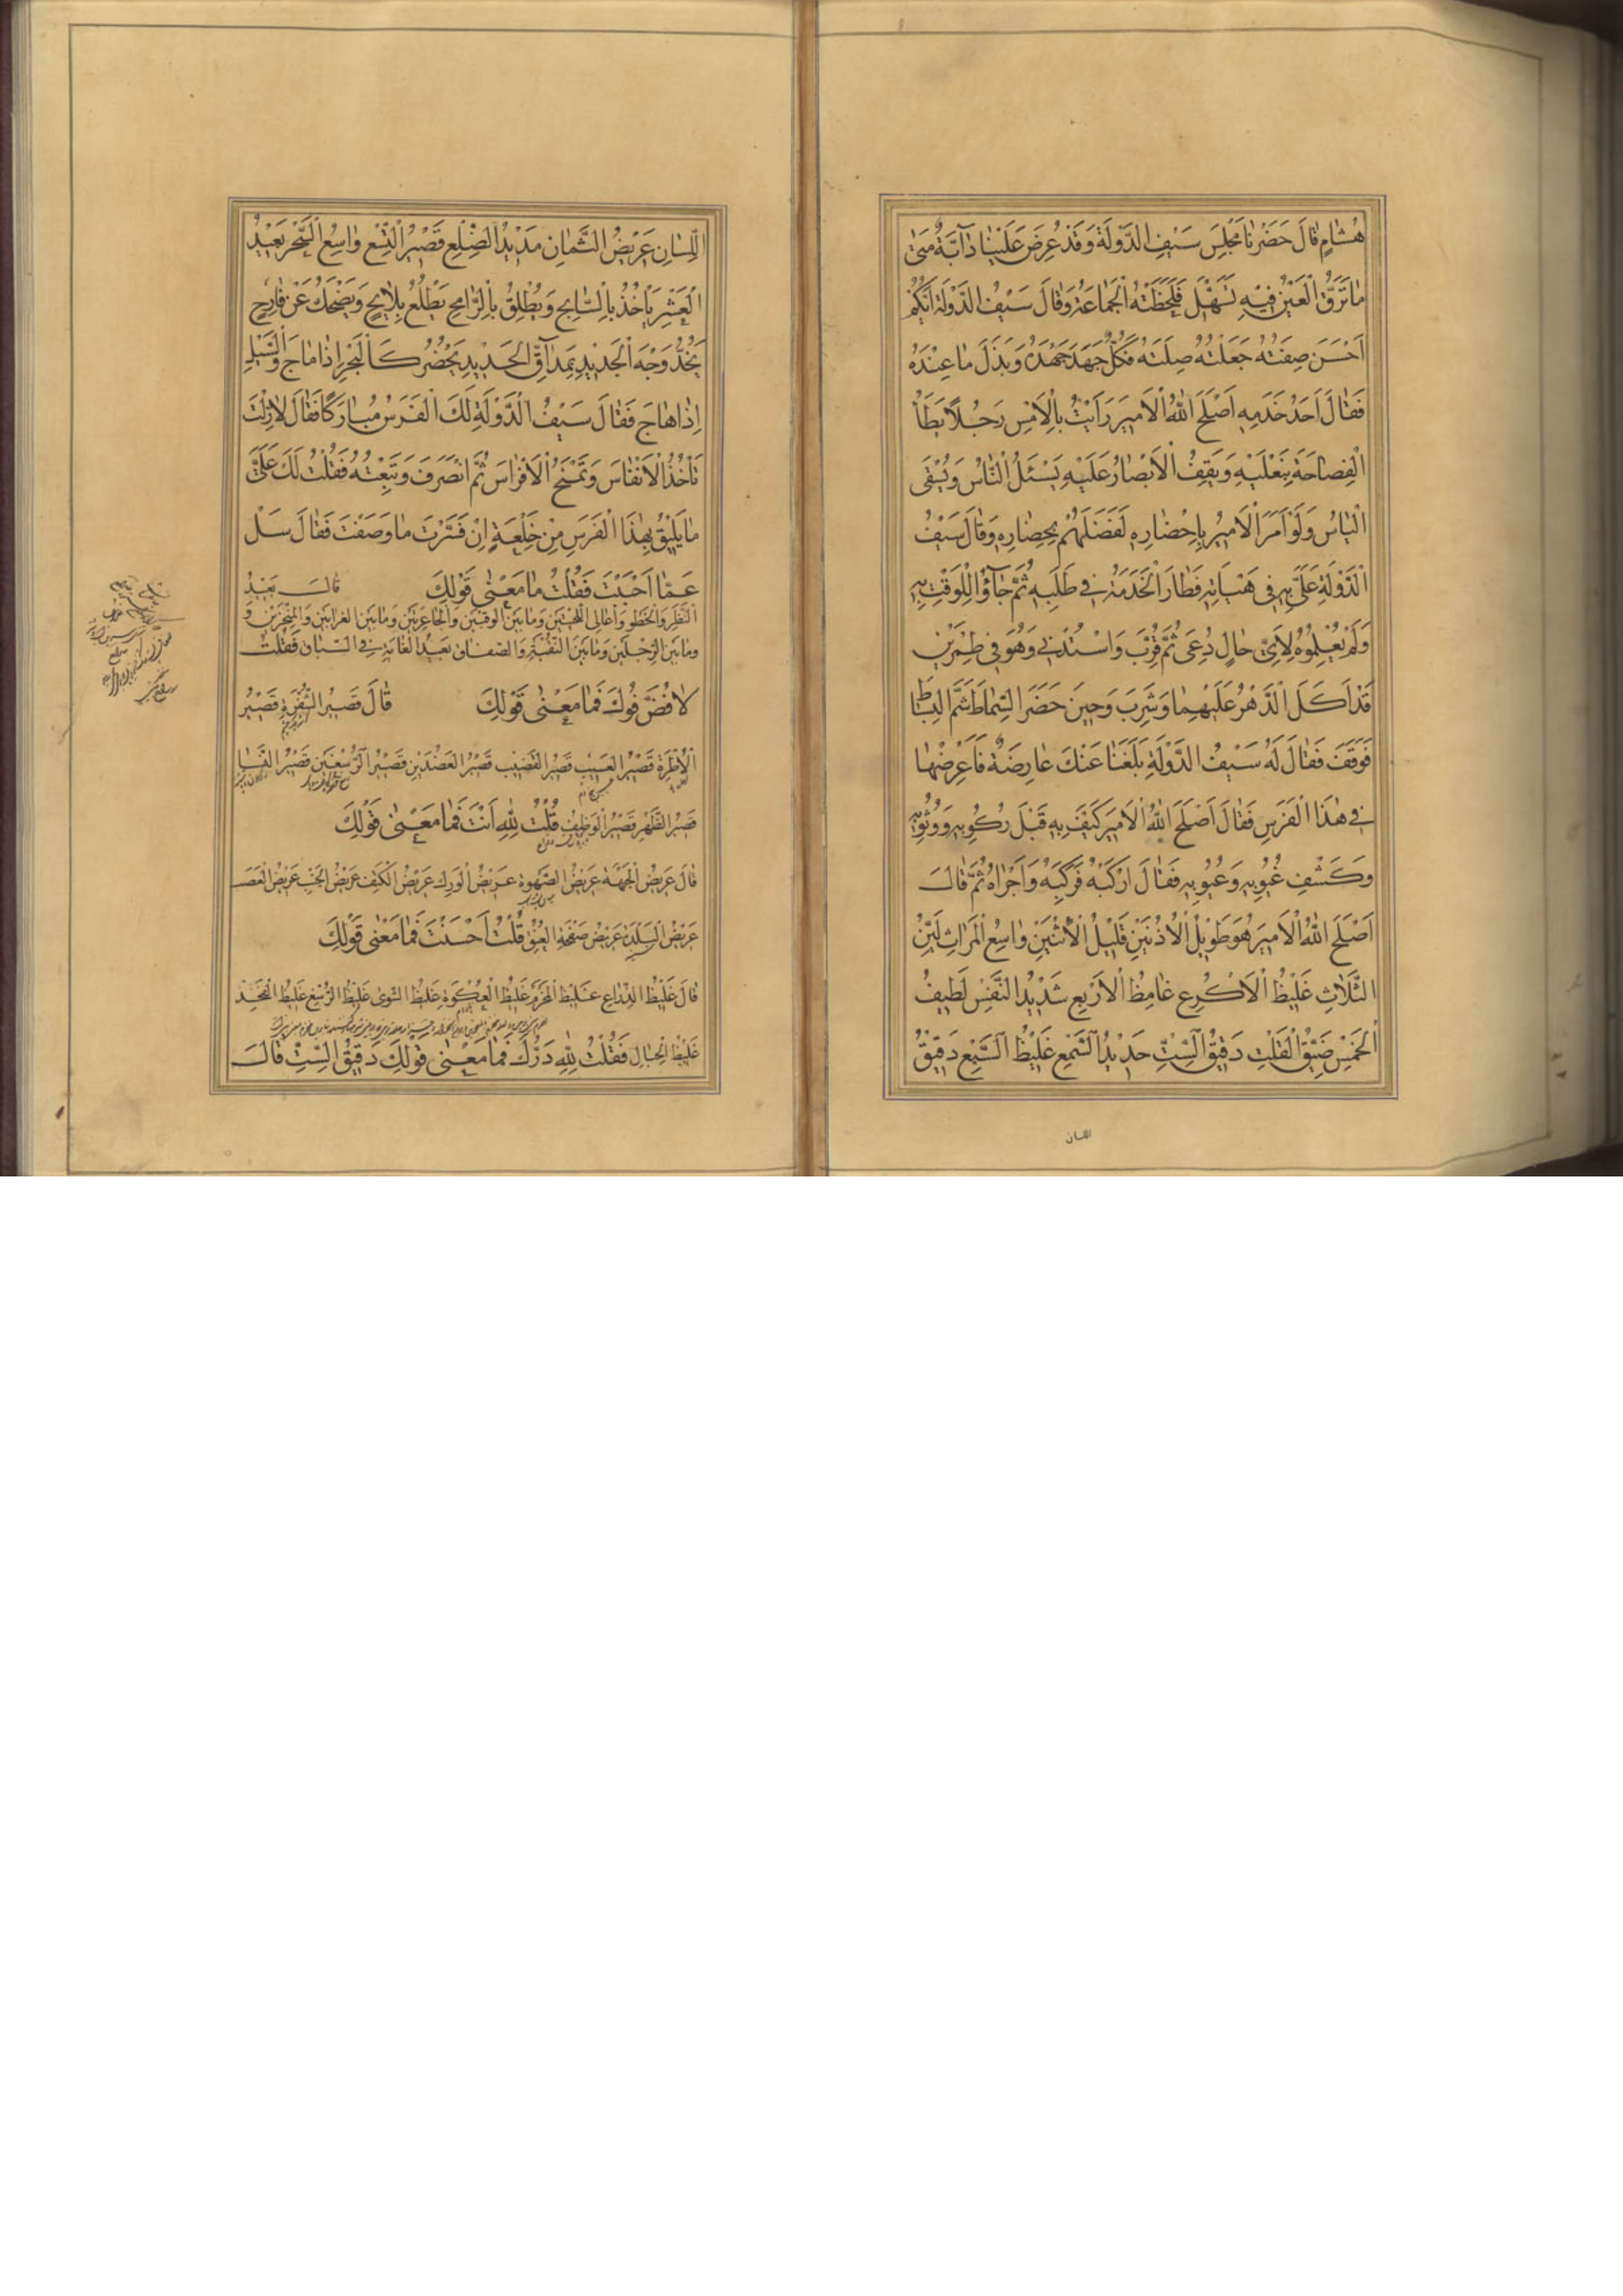 هِشَامٍ قَالَ حَضَرْنَا مَجْلِسَ سَيْفِ الدَّوْلَةِ وَقَدْ عُرِضَ عَلَيْنَا دَابَّةٌ مَتٰى
مَا تَرَقَّ الْعَيْنُ فِيْهِ تَسَهَّلَ فَلَحَظَتْهُ الْجَمَاعَةُ وَقَالَ سَيْفُ الدَّوْلَةِ اَيُّكُمْ
اَحْسَنَ صِفَتَهُ جَعَلْتُهُ صِلَتَهُ فَكُلٌّ جَهَدَ جَهْدَهُ وَبَذَلَ مَا عِنْدَهُ
فَقَالَ اَحَدُ خَدَمِهِ اَصْلَحَ اللهُ الْاَمِيرَ رَاَيْتُ بِالْاَمْسِ رَجُلًا يَطَأُ
الْفِصَاحَةَ بِنَعْلَيْهِ وَيَقِفُ الْاَبْصَارُ عَلَيْهِ يَسْئَلُ النَّاسُ وَيُسْقَى
الْيَاسُ وَلَوْ اَمَرَ الْاَمِيرُ بِاِحْضَارِهِ لَفَضَلَهُمْ بِحِضَارِهِ وَقَالَ سَيْفُ
الْدَّوْلَةِ عَلَىَّ بِهِ فِى هَيْئَاتِهِ فَطَارَ الْخَدَمَةُ فِي طَلَبِهِ ثُمَّ جَاؤُا لِلْوَقْتِ بِهِ
وَلَمْ يُعْلِمُوهُ لِاَىِّ حَالٍ دُعِىَ ثُمَّ قُرِّبَ وَاسْتُدْنِيَ وَهُوَ فِى طِمْرَيْنِ
قَدْ اَكَلَ الْدَّهْرُ عَلَيْهِمَا وَشَرِبَ وَحِينَ حَضَرَ السِّمَاطَ لَثَمَ الْبِسَاطَ
فَوَقَفَ فَقَالَ لَهُ سَيْفُ الدَّوْلَةِ بَلَغَنَا عَنْكَ عَارِضَةٌ فَاعْرِضْهَا
فِي هٰذَا الْفَرَسِ فَقَالَ اَصْلَحَ اللهُ الْاَمِيرَ كَيْفَ بِهِ قَبْلَ رُكُوبِهِ وَوُثُوبِهِ
وَكَشْفِ غُيُوبِهِ وَعُيُوبِهِ فَقَالَ ارْكَبْهُ فَرَكِبَهُ وَاَجْرَاهُ ثُمَّ قَالَ
اَصْلَحَ اللهُ الْاَمِيرَ هُوَ طَوِيْلُ الْاُذُنَيْنِ قَلِيْلُ الْاِثْنَيْنِ وَاسِعُ الْمَرَاثِ لَيِّنُ
الثَّلَاثِ غَلِيْظُ الْاَكْرُعِ غَامِظُ الْاَرْبَعِ شَدِيْدُ النَّفَسِ لَطِيفُ
الْخَمْسِ ضَيِّقُ الْقَلْتِ دَقِيْقُ السِّتِّ حَدِيْدُ السَّمْعِ غَلِيْظُ السَّبْعِ دَقِيْقُ
اللسان
الْلِّسَانِ عَرِيْضُ الثَّمَانِ مَدِيْدُ الضِّلَعِ قَصِيْرُ التِّسْعِ وَاسِعُ السَّحْرِ بَعِيْدُ
الْعَشْرِ يَأْخُذُ بِالسَّابِحِ وَيُطْلِقُ بِالرَّامِحِ يَطْلُعُ بِلَايِحٍ وَيَضْحَكُ عَنْ قَارِحٍ
يَخُدُّ وَجْهَ الْجَدِيْدِ بِمِدَاقِّ الْحَدِيْدِ يَحْضُرُ كَالْبَحْرِ اِذَا مَاجَ وَالسَّيْلِ
اِذَا هَاجَ فَقَالَ سَيْفُ الْدَّوْلَةِ لَكَ الْفَرَسُ مُبَارَكًا فَقَالَ لَا زِلْتَ
تَأْخُذُ الْاَنْفَاسَ وَتَمْنَحُ الْاَفْرَاسَ ثُمَّ انْصَرَفَ وَتَبِعْتُهُ فَقُلْتُ لَكَ عَلَىَّ
مَا يَلِيْقُ بِهٰذَا الْفَرَسِ مِنْ خِلْعَةٍ اِنْ فَسَّرْتَ مَا وَصَفْتَ فَقَالَ سَلْ
عَمَّا اَحْبَبْتَ فَقُلْتُ مَا مَعْنٰى قَوْلِكَ قَالَ بَعِيْدُ
الْنَّظَرِ وَالْخَطْوِ وَاَعَالِى اللَّحْيَيْنِ وَمَا بَيْنَ الْوَقْبَيْنِ وَالْجَاعِرَتَيْنِ وَمَا بَيْنَ الْغُرَابَيْنِ وَالْمَنْخِرَيْنِ وَ
وَمَا بَيْنَ الرِّجْلَيْنِ وَمَا بَيْنَ النَّقْبَةِ وَالصِّفَاقِ بَعِيْدُ الْغَايَةِ فِي السِّبَاقِ فَقُلْتُ
لَا فُضَّ فُوكَ فَمَا مَعْنٰى قَوْلِكَ قَالَ قَصِيْرُ الشَّعْرَةِ قَصِيْرُ
الْاُطْرَةِ قَصِيْرُ الْعَسِيْبِ قَصِيْرُ الْقَضِيْبِ قَصِيْرُ الْعَضُدَيْنِ قَصِيْرُ الرُّسْغَيْنِ قَصِيْرُ النَّسَا
قَصِيْرُ الظَّهْرِ قَصِيْرُ الْوَظِيْفِ قُلْتُ لِلّٰهِ اَنْتَ فَمَا مَعْنٰى قَوْلِكَ
قَالَ عَرِيْضُ الْجَبْهَةِ عَرِيْضُ الصَّهْوَةِ عَرِيْضُ الْوَرِكِ عَرِيْضُ الْكَتِفِ عَرِيْضُ الْجَنْبِ عَرِيْضُ الْعَصَبِ
عَرِيْضُ الْبَلْدَةِ عَرِيْضُ صَفْحَةِ الْعُنُقِ قُلْتُ اَحْسَنْتَ فَمَا مَعْنٰى قَوْلِكَ
قَالَ غَلِيْظُ الذِّرَاعِ غَلِيْظُ الْمَحْزِمِ غَلِيْظُ الْعُكْوَةِ غَلِيْظُ الشَّوٰى غَلِيْظُ الرُّسْغِ غَلِيْظُ الْفَخِذِ
غَلِيْظُ الْحِبَالِ فَقُلْتُ لِلّٰهِ دَرُّكَ فَمَا مَعْنٰى قَوْلِكَ دَقِيْقُ السِّتِّ قَالَ